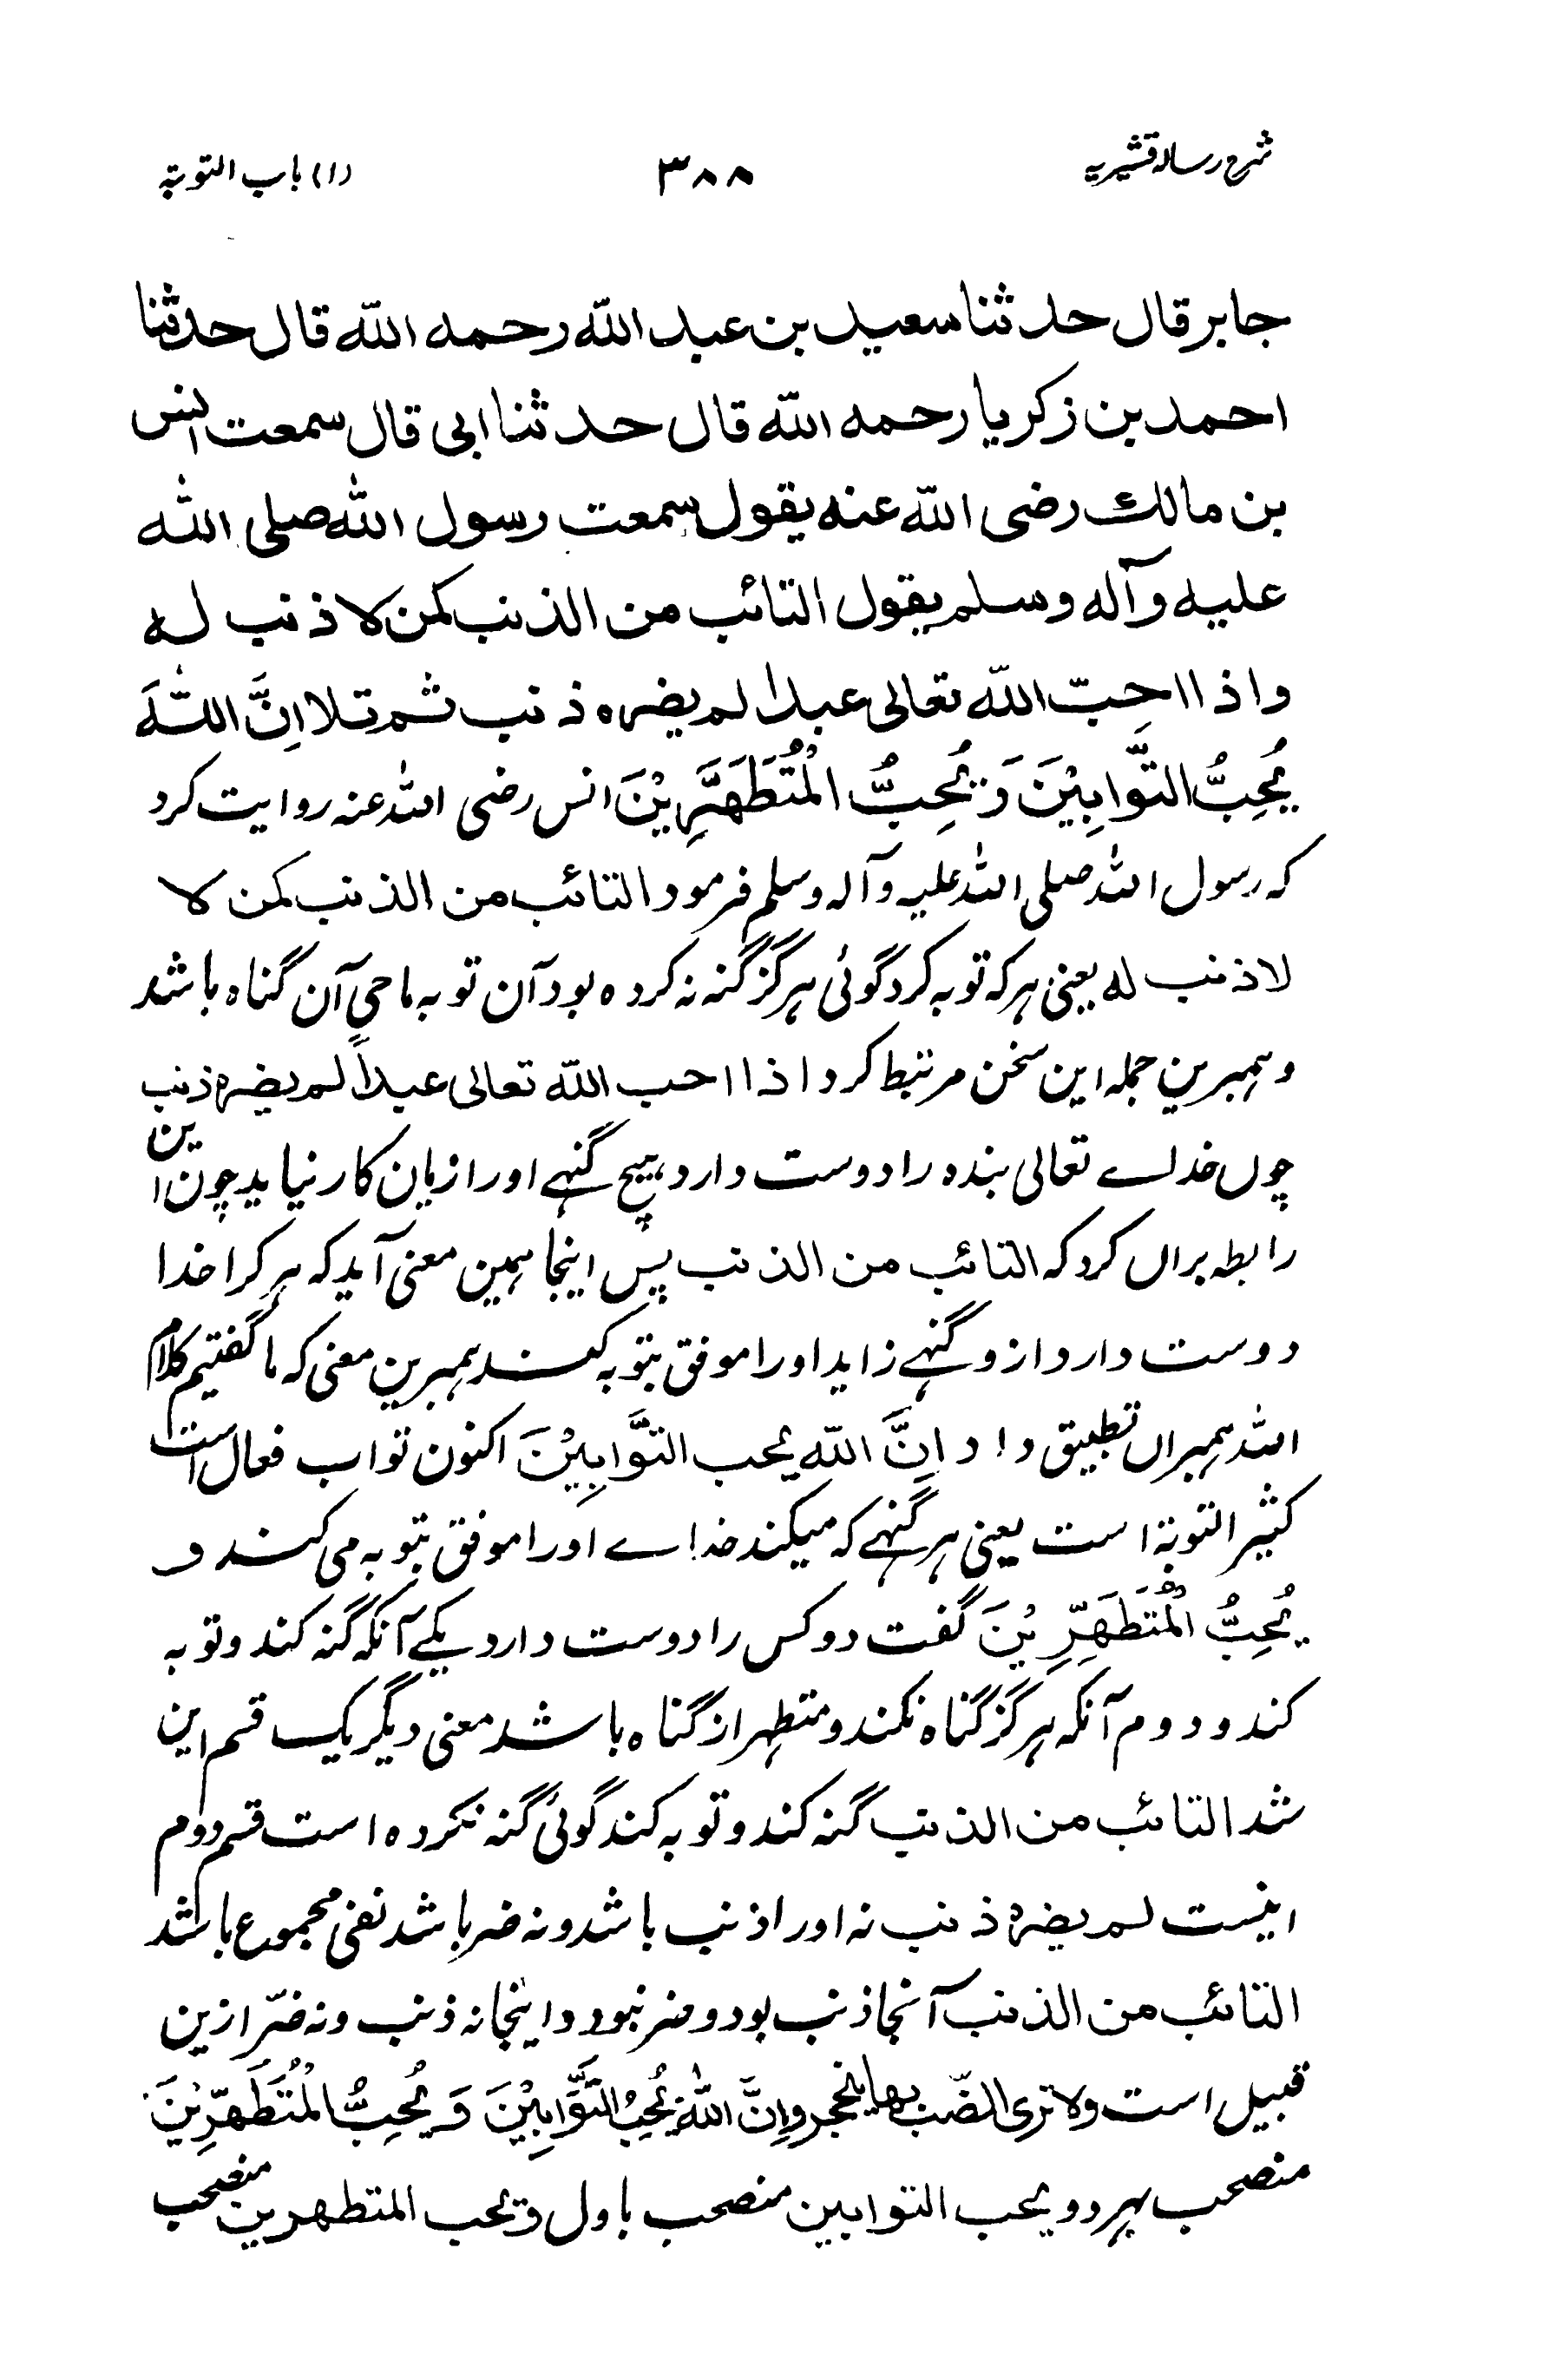 شرح رسالہ قشیریہ ۳۸۸ (۱) باب التوبۃ
جابر قال حدثنا سعید بن عبد اللّٰہ رحمہ اللّٰہ قال حدثنا
احمد بن زکریا رحمہ اللّٰہ قال حدثنا ابی قال سمعت انس
بن مالک رضی اللّٰہ عنہ یقول سمعت رسول اللّٰہ صلی اللّٰہ
علیہ وآلہ وسلم یقول التائب من الذنب کمن لا ذنب لہ
واذا احبّ اللّٰہ تعالی عبدا لم یضرہ ذنب ثم تلا اِنَّ اللّٰہَ
یُحِبُّ التَّوَّابِیْنَ وَ یُحِبُّ الْمُتَطَهِّرِیْنَ انس رضی اللّٰہ عنہ روایت کرد
کہ رسول اللّٰہ صلی اللّٰہ علیہ وآلہ وسلم فرمود التائب من الذنب کمن لا
لا ذنب لہ یعنی ہر کہ توبہ کرد گوئی ہرگز گنہ نہ کردہ بود آن توبہ ماحیِ آن گناہ باشد
وہمبرین جملہ این سخن مرتبط کرد اذا احب اللّٰہ تعالی عبداً لم یضرہ ذنب
چوں خداے تعالی بندہ را دوست دارد ہیچ گنہے اورا زیان کار نیاید چون این
رابطہ براں کرد کہ التائب من الذنب پس اینجا ہمین معنی آید کہ ہر کرا خدا
دوست دارد ازو گنہے زاید اورا موفق بتوبہ کند ہمبرین معنی کہ ما گفتیم کلام
اللّٰہ ہمبراں تطبیق داد اِنَّ اللّٰہ یحب التَّوَّابِیْنَ اکنون تواب فعال است
کثیر التوبۃ است یعنی ہر گنہے کہ میکند خداے اورا موفق بتوبہ می کند و
یُحِبُّ الْمُتَطَهِّرِیْنَ گفت دو کس را دوست دارد یکے آنکہ گنہ کند وتوبہ
کند ودوم آنکہ ہرگز گناہ نکند ومتطہر از گناہ باشد معنی دیگر یک قسم این
شد التائب من الذنب گنہ کند وتوبہ کند گوئی گنہ نکردہ است قسم دوم
اینست لم یضرہ ذنب نہ اورا ذنب باشد ونہ ضر باشد نفی مجموع باشد
التائب من الذنب آنجا ذنب بود وضر نبود واینجا نہ ذنب ونہ ضرّ ازین
قبیل است ولا تری الضّب بها ینجحر واِنَّ اللّٰہَ یُحِبُّ التَّوَّابِیْنَ وَ یُحِبُّ الْمُتَطَهِّرِیْنَ
منصحب بہر دو ویحب التوابین منصحب باول ویحب المتطهرین منصحب